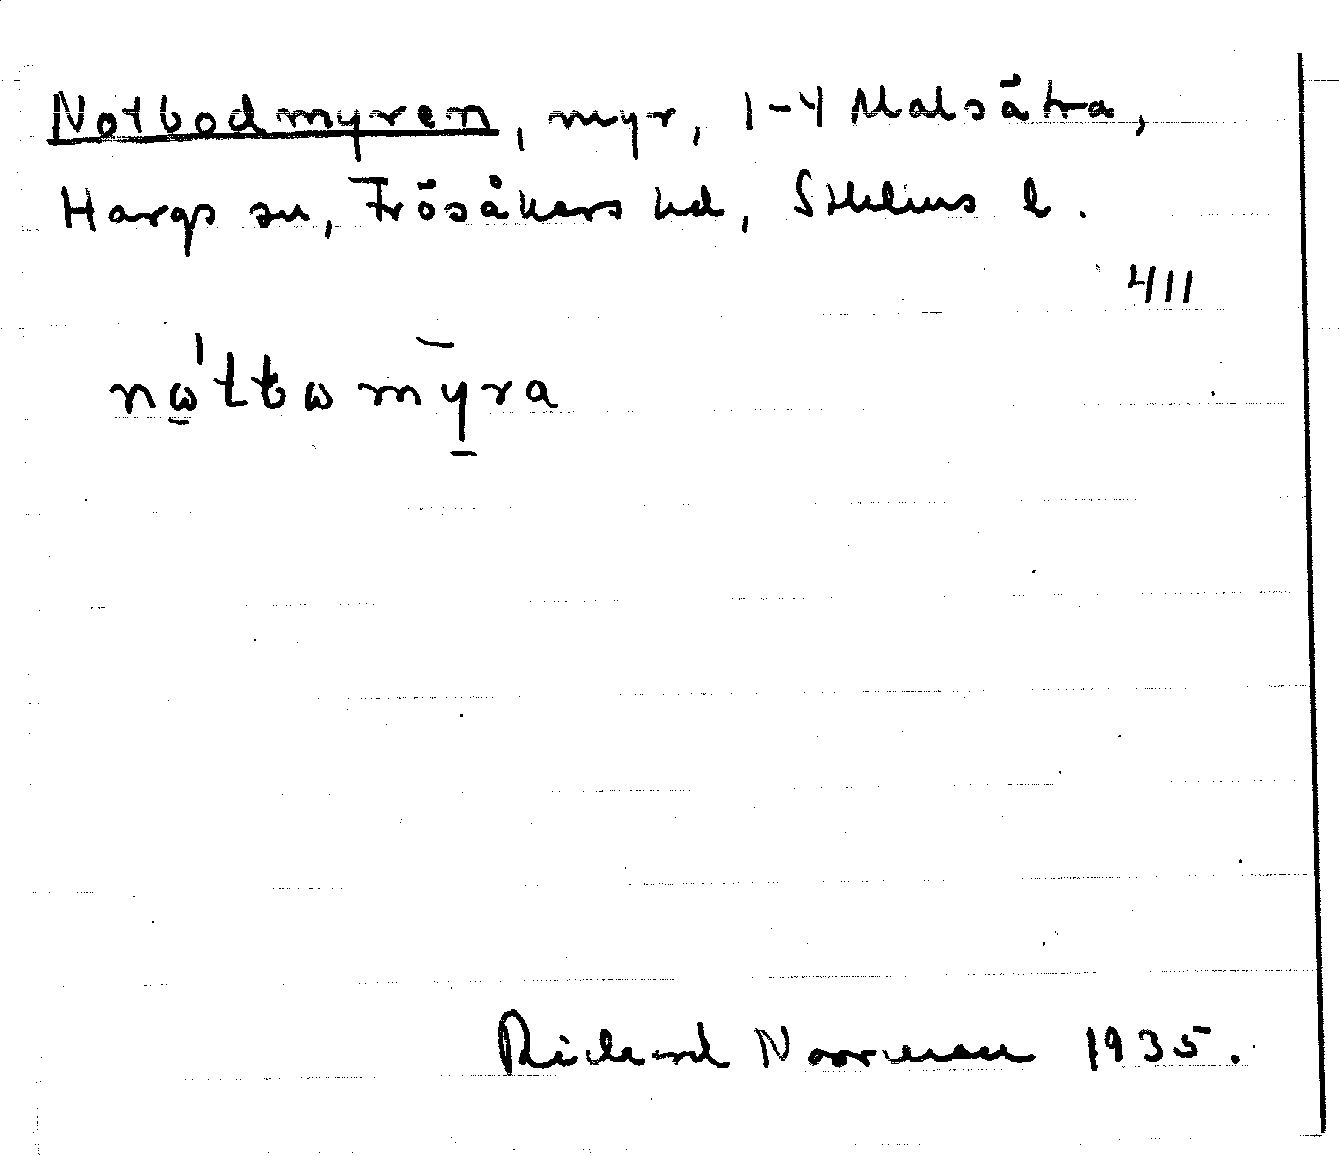 Notbodmyren, myr, 1-4 Malsätra,
Hargs sn, Frösåkers hd, Sthlms l.
411
nώ̱ttωmȳ̱ra
Rickard Norrman 1935.